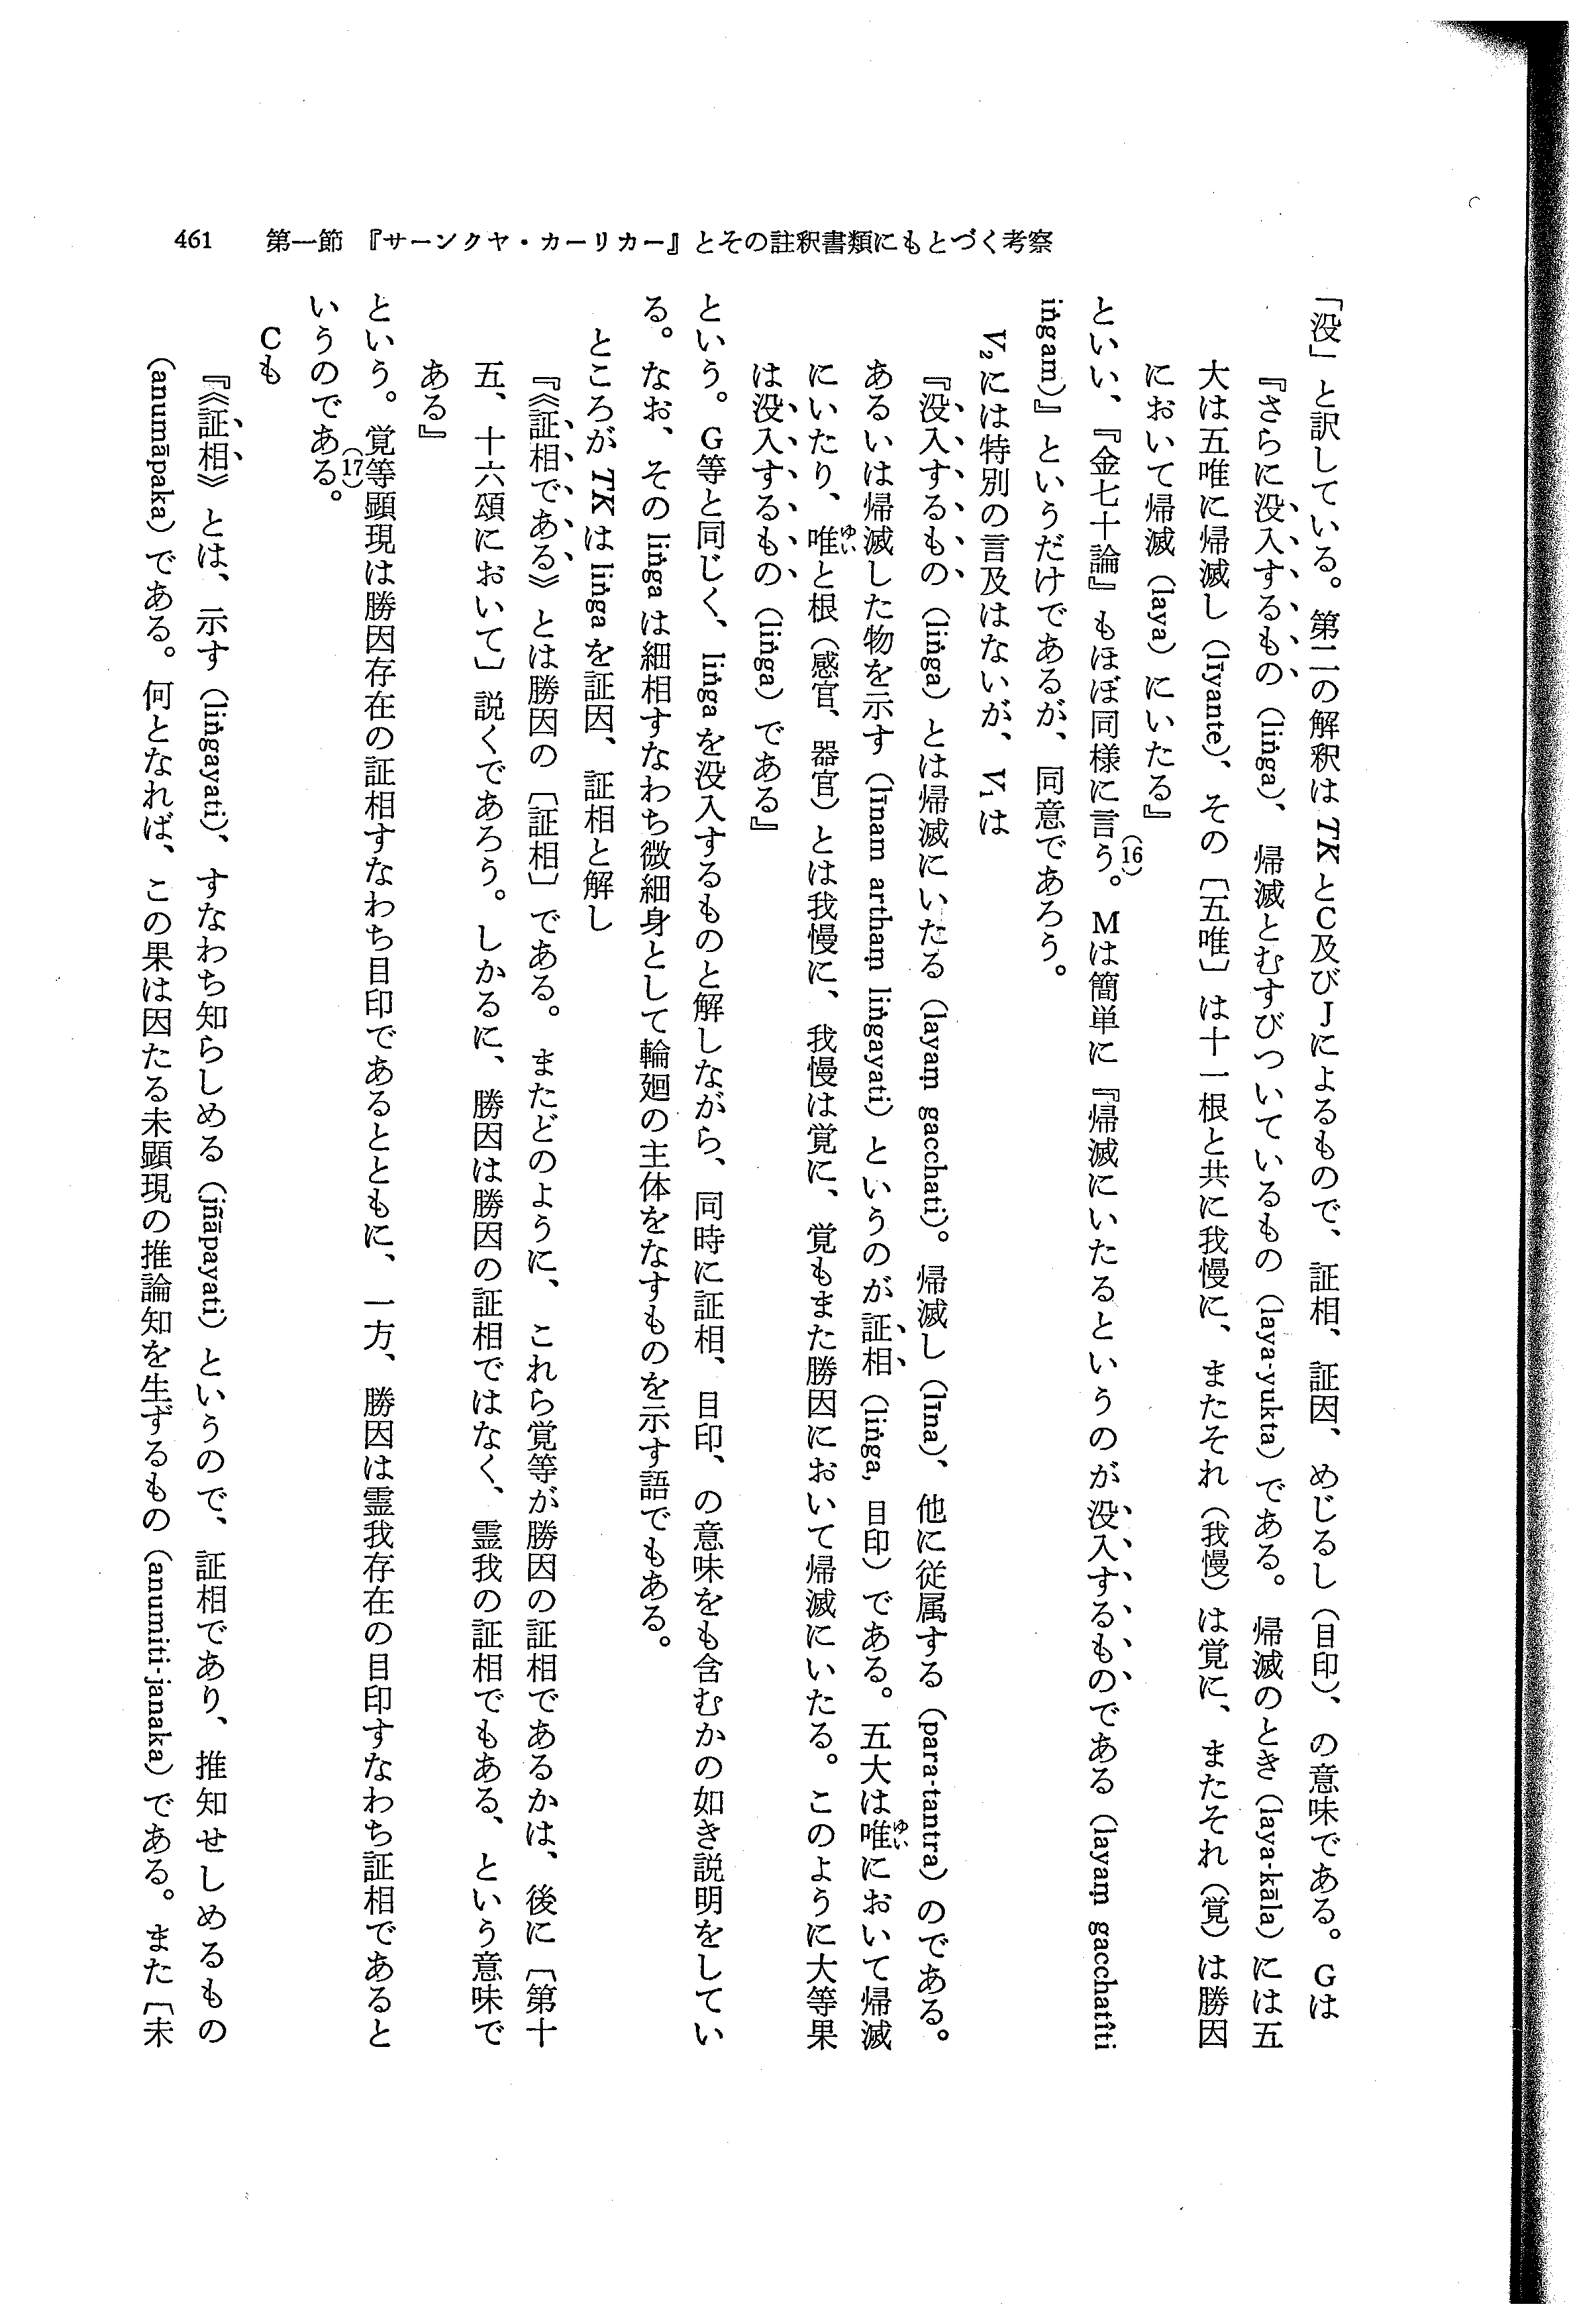 461 第一節 『サーンクヤ・カーリカー』とその註釈書類にもとづく考察
「没」と訳している。第二の解釈はTKとC及びJによるもので、証相、証因、めじるし（目印）、の意味である。Gは
『さらに没入するもの（liṅga）、帰滅とむすびついているもの（laya-yukta）である。帰滅のとき（laya-kāla）には五
大は五唯に帰滅し（līyante）、その〔五唯〕は十一根と共に我慢に、またそれ（我慢）は覚に、またそれ（覚）は勝因
において帰滅（laya）にいたる』
といい、『金七十論』もほぼ同様に言う。(16)Mは簡単に『帰滅にいたるというのが没入するものである（layaṃ gacchatīti
iṅgam）』というだけであるが、同意であろう。
V₂には特別の言及はないが、V₁は
『没入するもの（liṅga）とは帰滅にいたる（layaṃ gacchati）。帰滅し（līna）、他に従属する（para-tantra）のである。
あるいは帰滅した物を示す（līnam arthaṃ liṅgayati）というのが証相（liṅga, 目印）である。五大は唯ゆいにおいて帰滅
にいたり、唯ゆいと根（感官、器官）とは我慢に、我慢は覚に、覚もまた勝因において帰滅にいたる。このように大等果
は没入するもの（liṅga）である』
という。G等と同じく、liṅgaを没入するものと解しながら、同時に証相、目印、の意味をも含むかの如き説明をしてい
る。なお、そのliṅgaは細相すなわち微細身として輪廻の主体をなすものを示す語でもある。
ところがTKはliṅgaを証因、証相と解し
『《証相である》とは勝因の〔証相〕である。またどのように、これら覚等が勝因の証相であるかは、後に〔第十
五、十六頌において〕説くであろう。しかるに、勝因は勝因の証相ではなく、霊我の証相でもある、という意味で
ある』
という。覚等顕現は勝因存在の証相すなわち目印であるとともに、一方、勝因は霊我存在の目印すなわち証相であると
いうのである。(17)
Cも
『《証相》とは、示す（liṅgayati）、すなわち知らしめる（jñāpayati）というので、証相であり、推知せしめるもの
（anumāpaka）である。何となれば、この果は因たる未顕現の推論知を生ずるもの（anumiti-janaka）である。また〔未